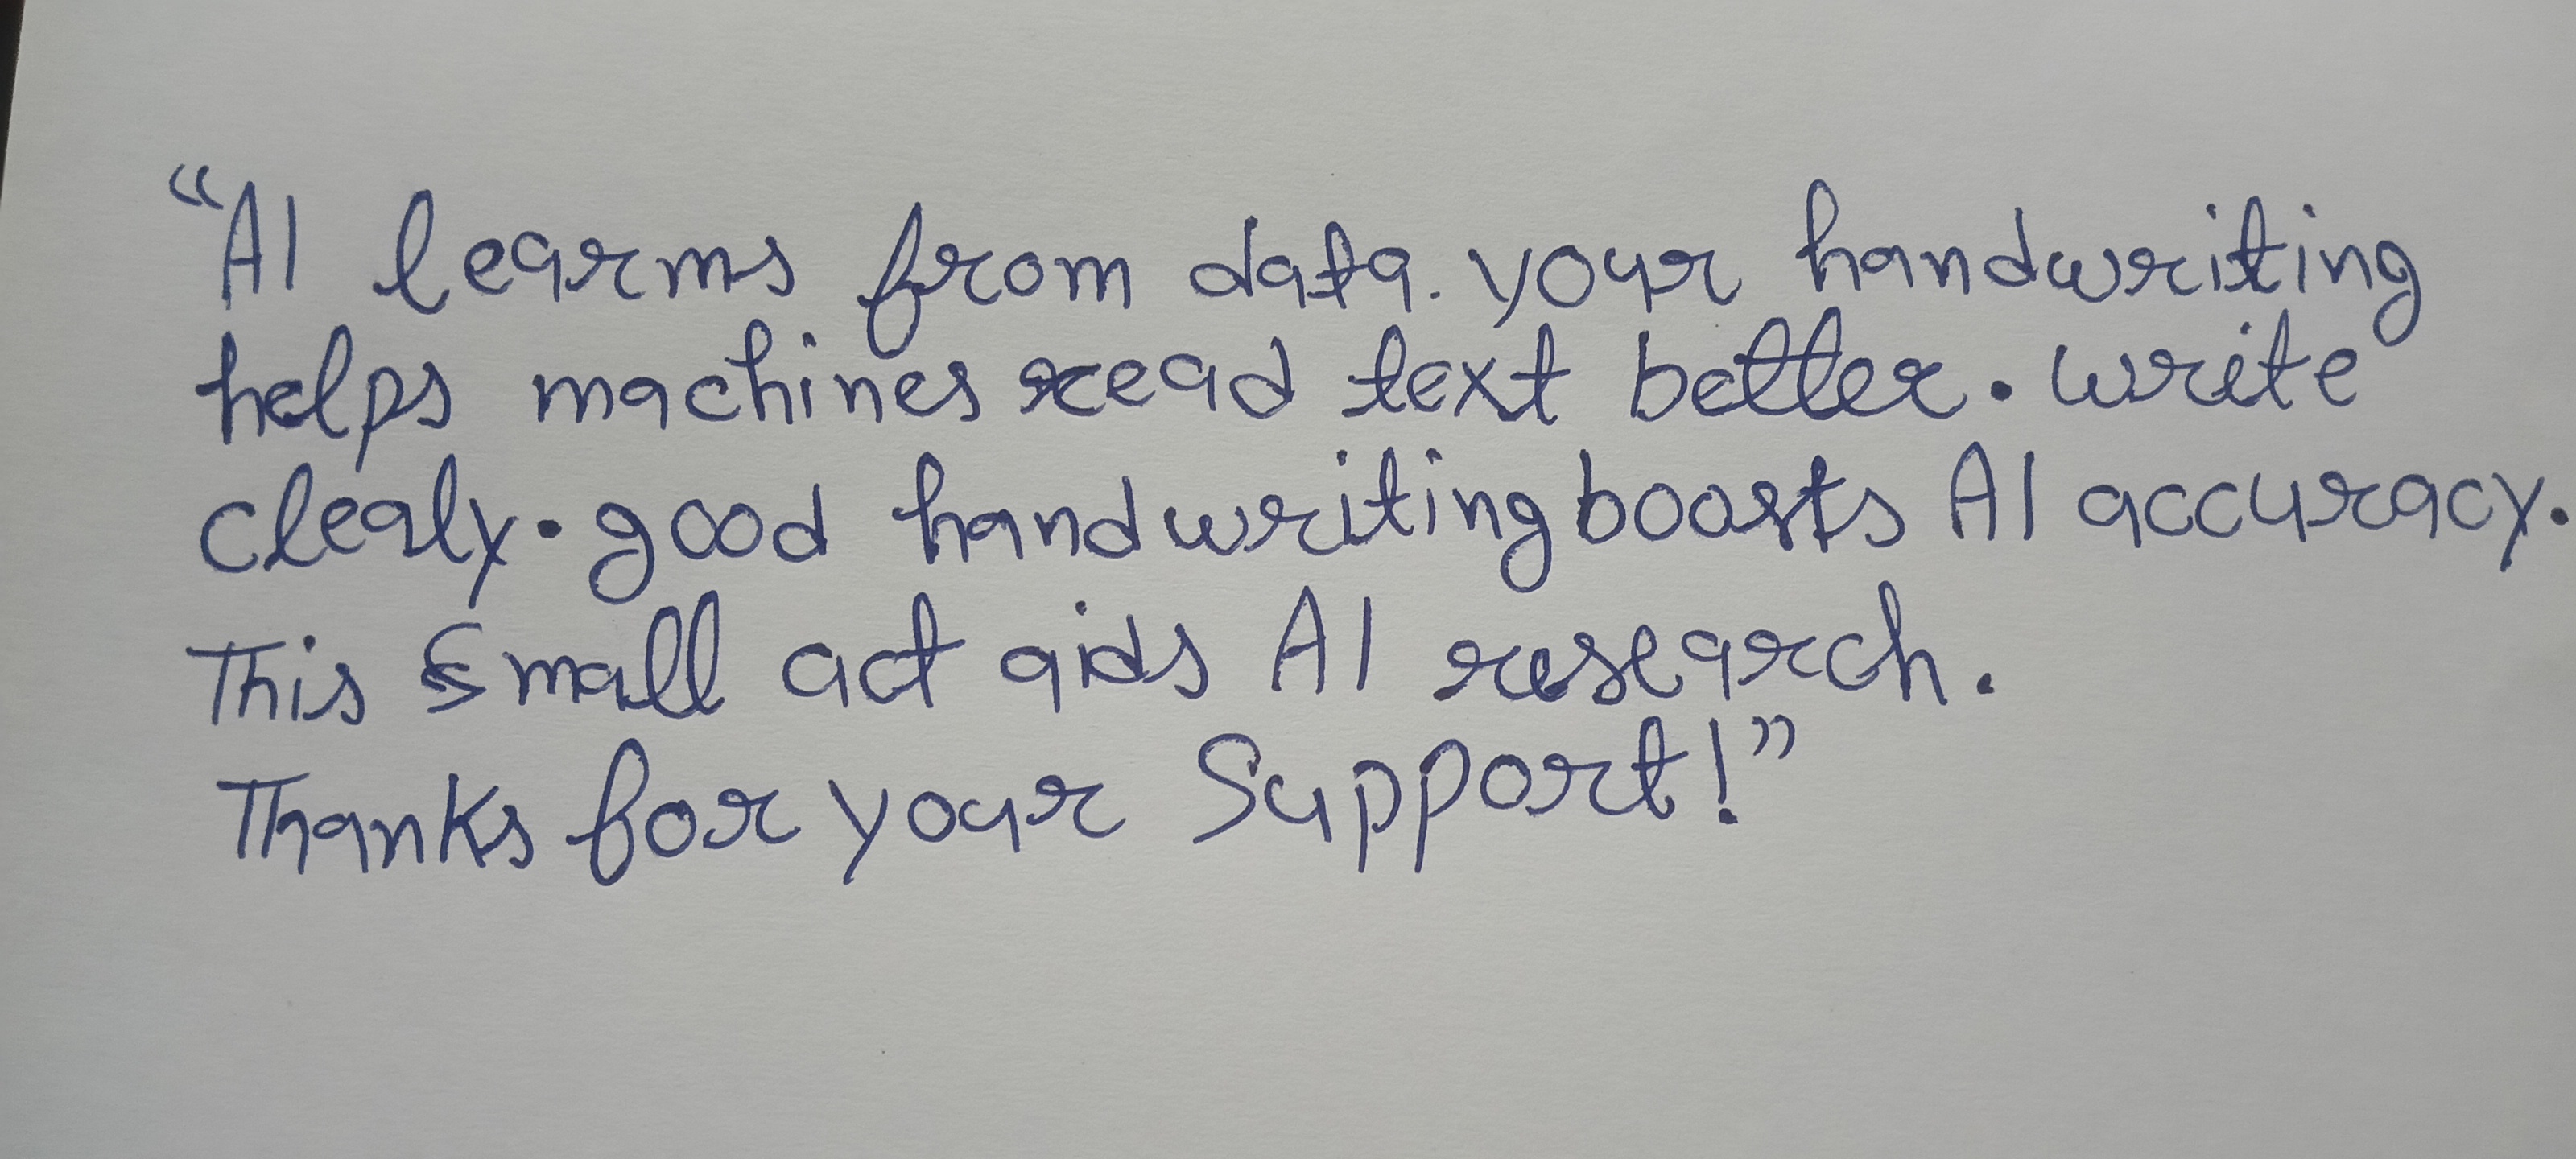 "AI learns from data. your handwriting
helps machines read text better. write
clealy. good handwriting boosts AI accuracy.
This Small act aids AI research.
Thanks for your Support!"